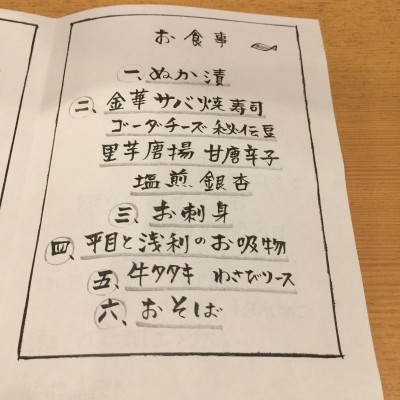 お食事
一、ぬか漬
二、金華サバ焼寿司
ゴーダチーズ 秘伝豆
里芋唐揚 甘唐辛子
塩煎銀杏
三、お刺身
四、平目と浅利のお吸物
五、牛タタキ わさびソース
六、おそば